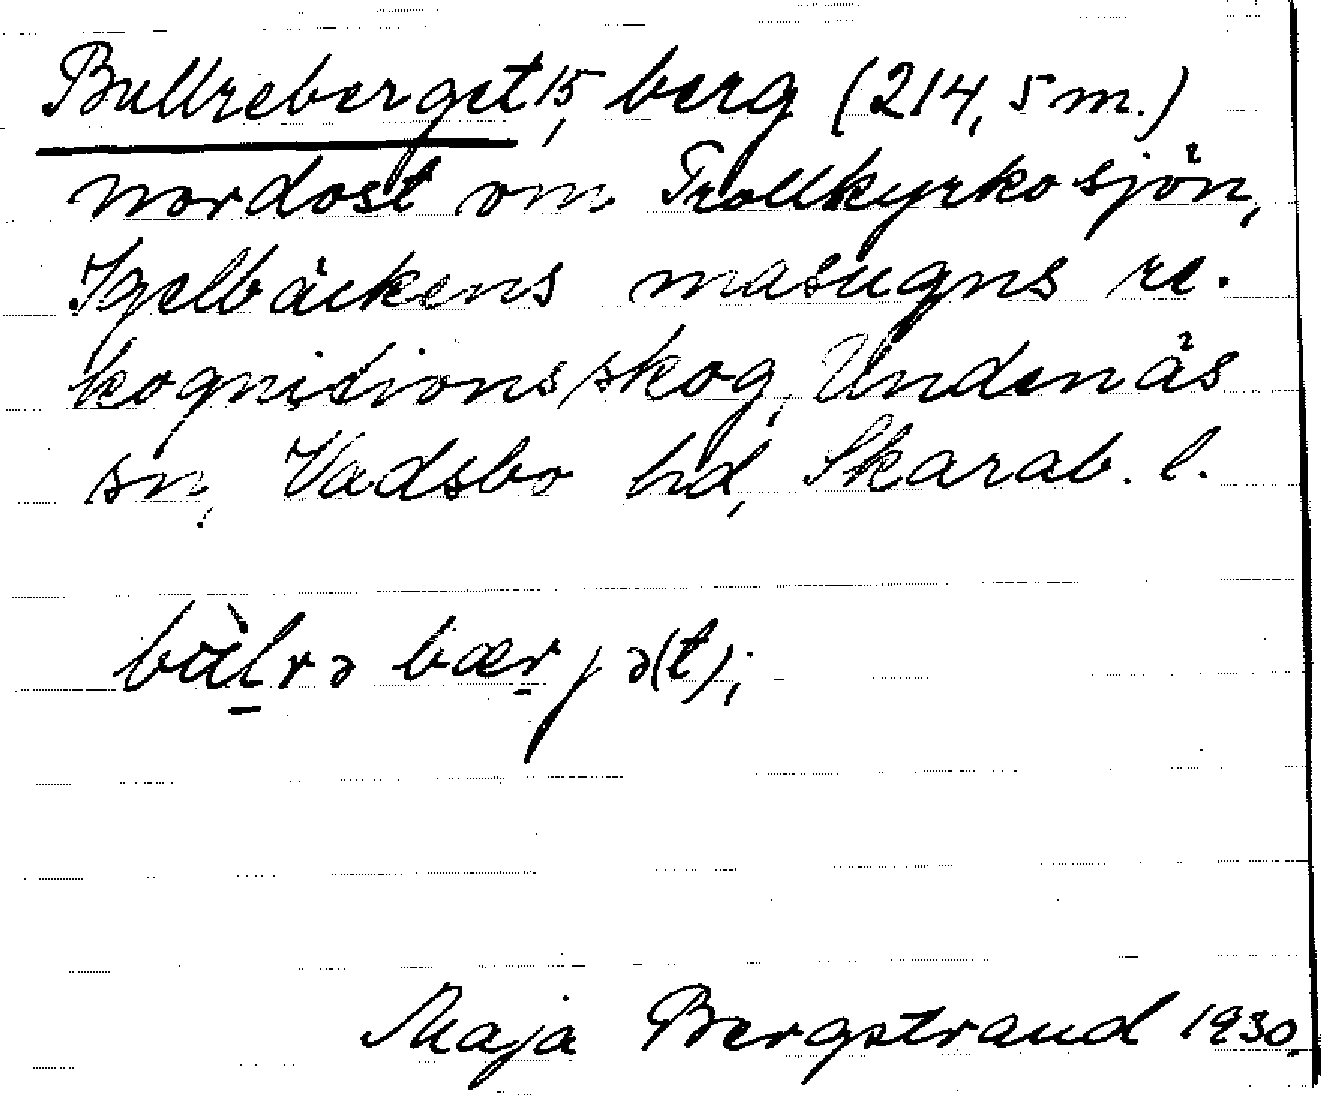 Bullreberget 15, berg (214,5 m.)
nordost om Trollkyrkosjön,
Igelbäckens masugns re-
kognitionsskog, Undenäs
sn, Vadsbo hd, Skarab. l.
bùl̠rə bær̠jə(t);
Maja Bergstrand 1930.